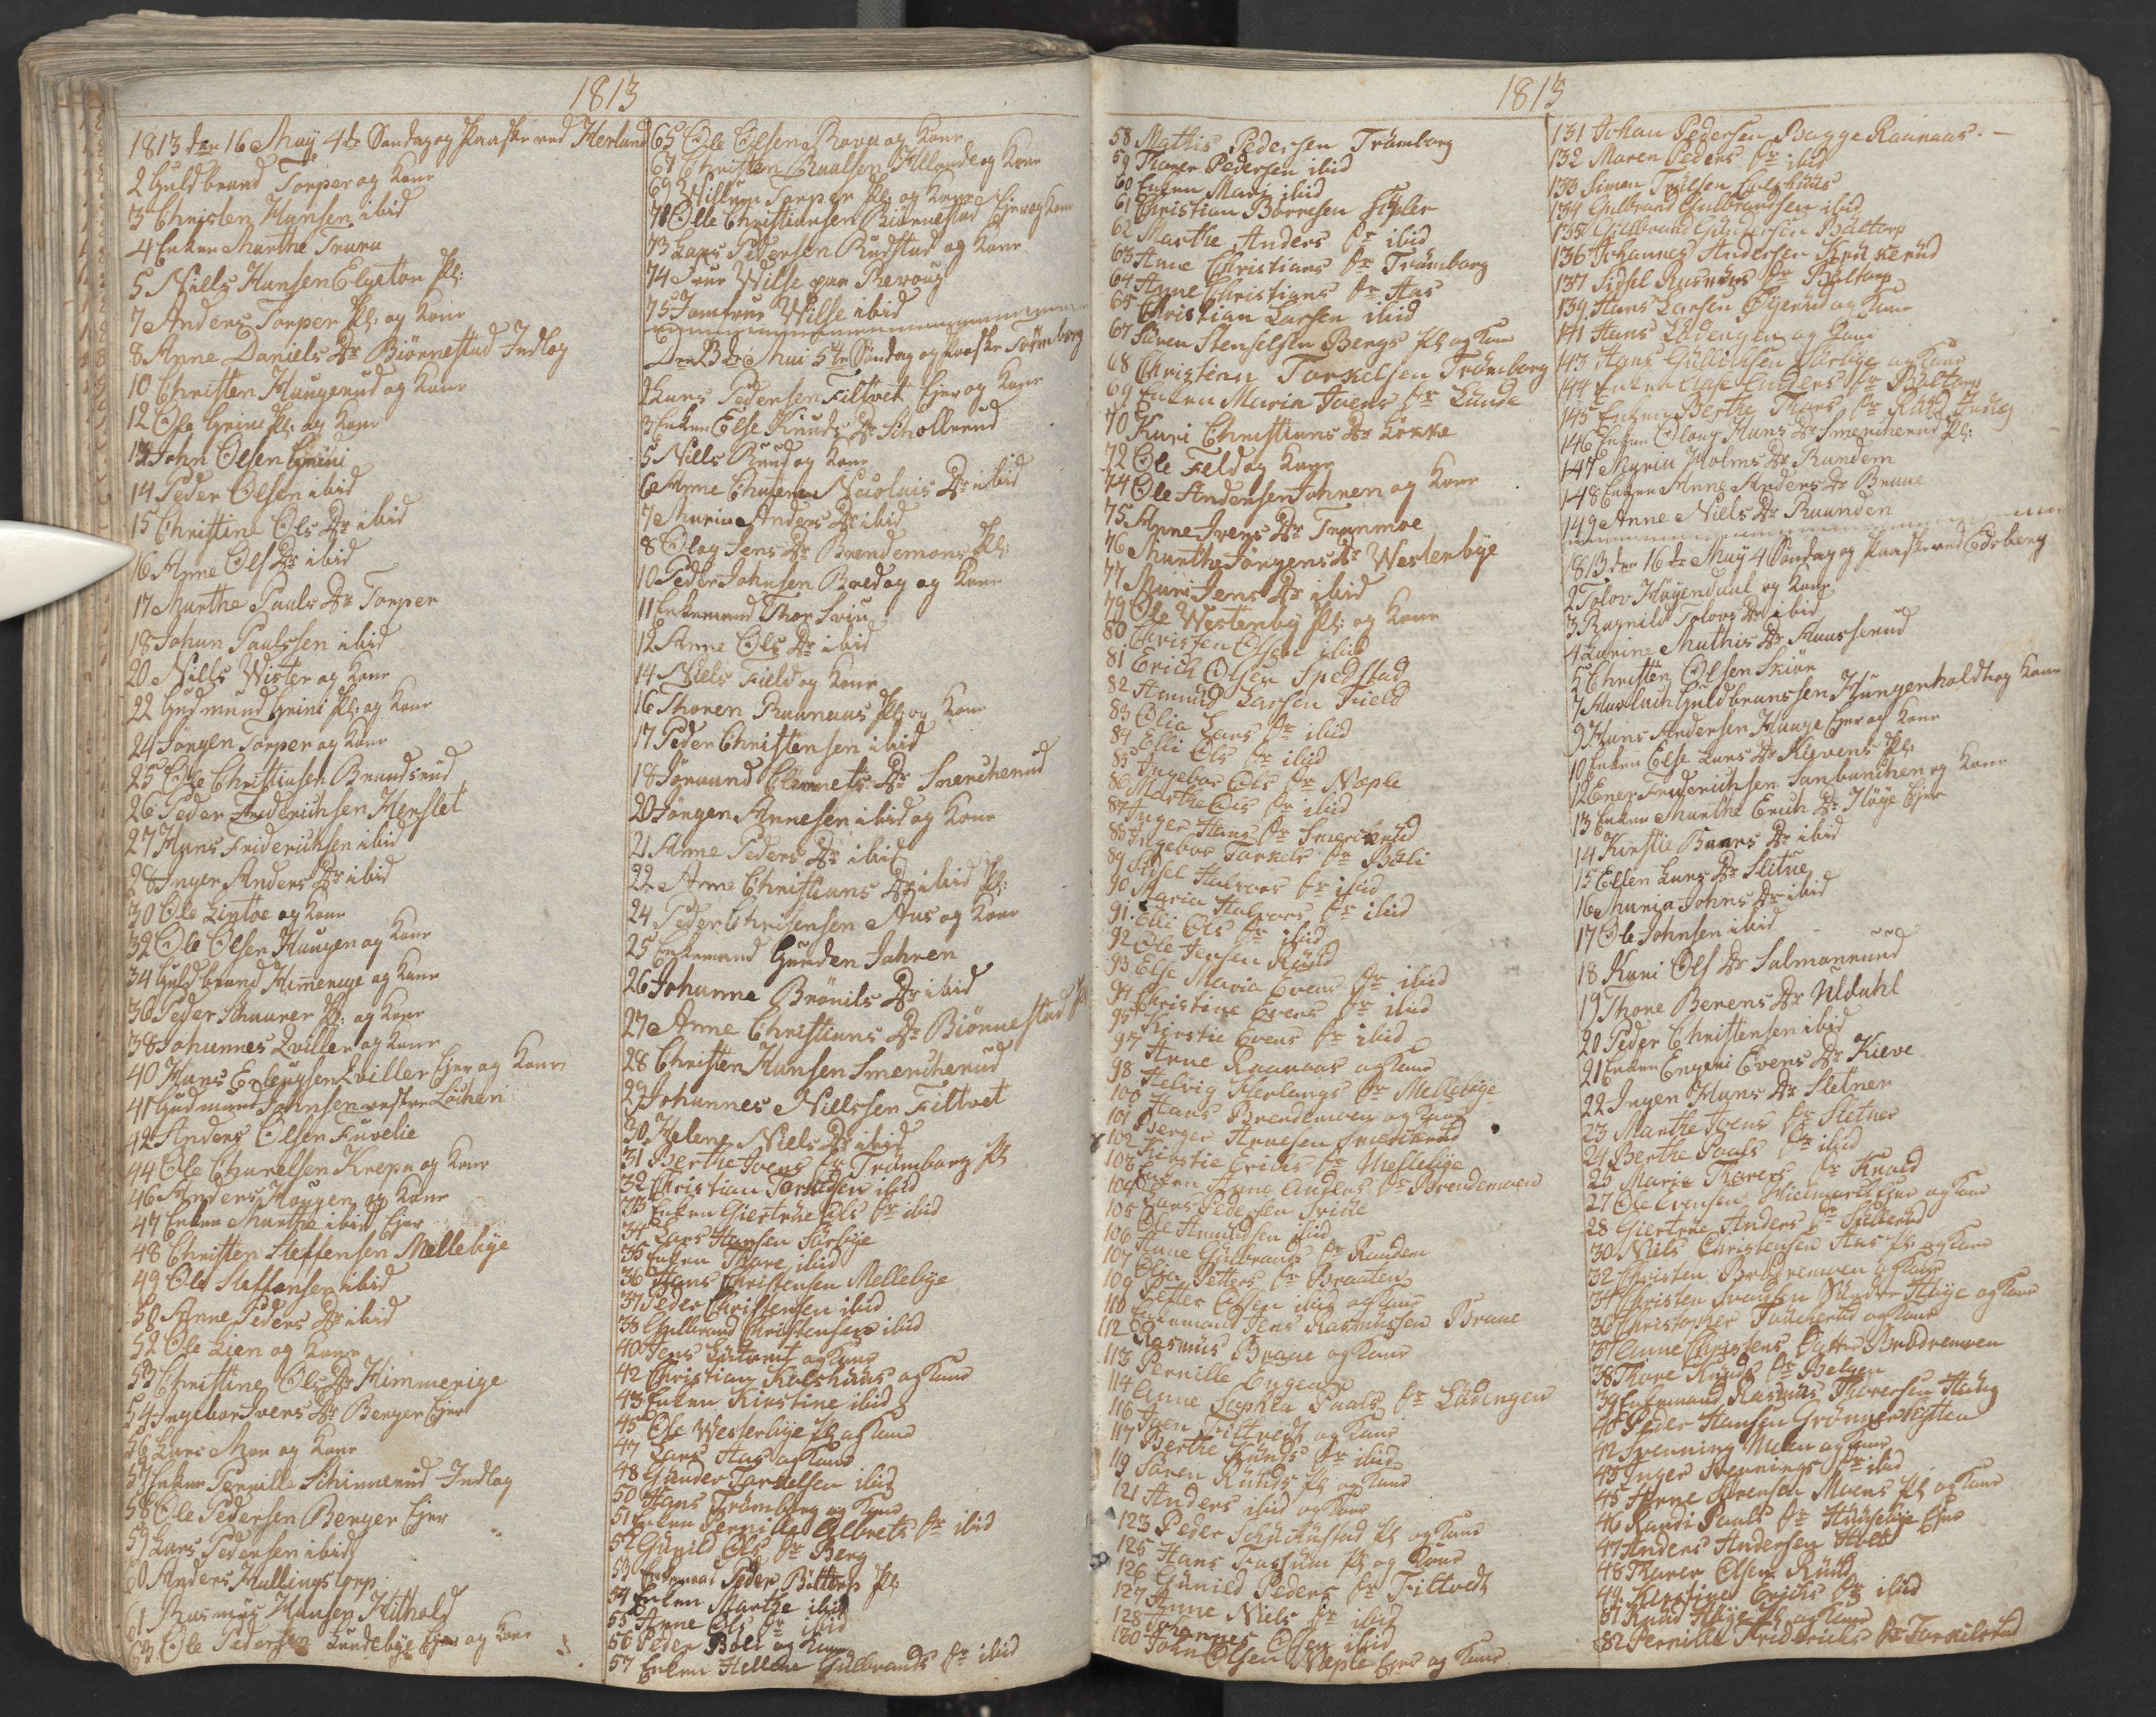 1813
1813 den 16 May 4de Søndag og Paaske ved Herland
2 Guldbrand Torper og Kone
3 Christen Hansen ibid
4 Enken Marthe Trara
5 Nills Hansen Elgeton Pl:
7 Anders Torper Pl: og Kone
8 Anne Daniels Dr Biørnestad Indlog
10 Christen Haugerud og Kone
12 Ole Grini Pl: og Kone
13 John Olsen Grini
14 Peder Olsen ibid
15 Christine Ols Dr ibid
16 Anne Ols Dr ibid
17 Marthe Pauls Dr Torper
18 Johan Paulssen ibid
20 Nills Wister og Kone
22 Gudmund Grini Pl: og Kone
24 Jørgen Torper og Kone
25 Ole Christiansen Brandsrud
26 Peder Friderichsen Herstet
27 Hans Friderichsen ibid
28 Inger Anders Dr ibid
30 Ole Lintoe og Kone
32 Ole Olsen Haugen og Kone
34 Guldbrand Himerige og Kone
36 Peder Skaarer Pl: og Kone
38 Johannes Qviller og Kone
40 Hans Qviller Ejer og Kone
41 Gudmund Johnsen vestre Löchen
42 Anders Olsen Fuvelie
44 Ole Charelsen Krepa og Kone
46 Anders Hougen og Kone
47 Enken Marthe ibid Ejer
48 Christen Steffensen Mellebye
49 Ole Steffensen ibid
50 Anne Peders Dr ibid
52 Ole Lien og Kone
53 Christine Ols Dr Himmerige
54 Ingebor Ivers Dr Berger Ejer
56 Lars Moe og Kone
57 Enken Pernille Schinnerud Indlog
58 Ole Pedersen Berger Ejer
59 Lars Pedersen ibid
60 Anders Hallingstorp
61 Rasmus Hansen Kithold
63 Ole Pedersen Lundebye Ejer og Kone
65 Ole Olsen Rova og Kone
67 Christen Paalsen og Kone
69 Willum Torper Pl: og Kone
71 Olle Christiansen Biørnestad Ejer og Kone
73 Lars Pedersen Rudstad og Kone
74 Frue Wilse paa Revoug
75 Jomfrue Wilse ibid
Den 23de Mai 5te Søndag og Paaske Trømborg
2 Lars Pedersen Filtvet Ejer og Kone
3 Enken Else Knuds Dr Schollerud
5 Nills Ruud og Kone
6 Anne Nicolais Dr ibid
7 Maria Anders Dr ibid
8 Olog Jens Dr Brendemons Pl:
10 Peder Johnsen Boedog og Kone
11 Enkemand Thor
12 Anne Ols Dr ibid
14 Niels Field og Kone
16 Thoren Raanaas Pl: og Kone
17 Peder Christensen ibid
18 Jøraand Clemmets Dr Smercherud
20 Jørgen Arnesen ibid og Kone
21 Anne Peders Dr ibid
22 Anne Christians Dr ibid Pl:
24 Peder Christensen Aas og Kone
25 Enkemand Gunder Jahren
26 Johanne Brønils Dr ibid
27 Anne Christians Dr Biønnestad Pl
28 Christen Hansen Smercherud
29 Johannes Nielssen Filtvet
30 Helene Niels Dr ibid
31 Berthe Joens Dr Trømborg Pl
32 Christian Torkelsen ibid
33 Enken Giertrue Ols Dr ibid
34 Lars Hansen Sørbye
35 Enken Thore ibid
36 Hans Christensen Mellebye
37 Peder Christensen ibid
38 Gulbrand Christensen ibid
40 Jens og Kone
42 Christian Kulshuus og Kone
43 Enken Kirstine ibid
45 Ole Westerbye Pl og Kone
47 Lars Aas og Kone
48 Gunder Torkelsen ibid
50 Hans Trømborg og Kone
51 Enken Pernille Albrets Dr ibid
52 Gunild Ols Dr Berg
53 Enkemand Peder Bittorp Pl:
54 Enken Marthe ibid
55 Anne Ols Dr ibid
56 Peder Boli og Kone
57 Enken Hellene Gulbrands Dr ibid
1813
58 Mathis Pedersen Trömborg
59 Thorer Pedersen ibid
60 Enken Mari ibid
61 Christian Børresen
62 Marthe Anders Dr ibid
63 Anne Christians Dr Trømborg
64 Anne Christians Dr Aas
65 Christian Larsen ibid
67 Søren Stenselsen Bergs Pl og Kone
68 Christian Torkelsen Trömborg
69 Enken Maria Joens Dr Lunde
70 Kari Christians Dr Løkke
72 Ole Feld og Kone
74 Ole Andersen Jahren og Kone
75 Anne Ivers Dr Trønmoe
76 Marthe Jørgens Dr Westenbye
77 Mari Jens Dr ibid
79 Ole Westenby Pl: og Kone
80 Christen Olsen ibid
81 Erich Olsen Spedstad
82 Amund Larsen Field
83 Olia Lars Dr ibid
84 Elli Ols Dr ibid
85 Ingebor Ols Dr Næple
86 Marthe Ols Dr ibid
87 Inger Hans Dr Smerikrud
88 Ingebor Torkels Dr Boli
89 Sidsel Halvors Dr ibid
90 Maria Halvors Dr ibid
91 Elli Ols Dr ibid
92 Ole Jensen Ruud
93 Else Maria Evens Dr ibid
94 Christine Evens Dr ibid
95 Kirstie Evens Dr ibid
97 Arne Raanaas og Kone
98 Helvig Herlaugs Dr Mellebye
100 Hans Brendemoen og Kone
101 Berger Arnesen Smerikrud
102 Kirstie Erichs Dr Mellebye
103 Enken Anne Anders Dr Brendemoen
105 Lars Pedersen
106 Ole Amundsen ibid
107 Anne Gulbrands Dr Rundem
108 Olia Petters Dr Braaten
109 Petter Olsen ibid og Kone
110 Enkemand Jens Rasmussen Braae
112 Rasmus Braae og Kone
113 Pernille Engen
114 Anne Sophia Paals Dr Ludengen
116 Joen Filtvedt og Kone
117 Berthe Knuds Dr ibid
119 Søren Ruuds Pl og Kone
121 Anders ibid og Kone
123 Peder Pl og Kone
125 Hans Fossum Pl og Kone
126 Gunild Peders Dr Filtvedt
127 Anne Niels Dr ibid
128 Johannes Olsen ibid
130 John Olsen Næple Ejer og Kone
131 Johan Pedersen Bagge Raanaas.
132 Maren Peders Dr ibid
133 Simen Truelsen Kulshuus
134 Gulbrand Gulbrandsen ibid
135 Gulbrand Gundersen Baltorp
136 Johannes Andersen
137 Sidsel Rasmus Dr Baltorp
139 Hans Larsen Øgerud og Kone
141 Hans Lødengen og Kone
143 Hans Gullichsen og Kone
144 Enken Aase Anders Dr Baltorp
145 Enken Berthe Thors Dr Ruud Indlog
146 Enken Oloug Hans Dr Smercherud Pl:
147 Maria Holms Dr Rundem
148 Enken Anne Anders Dr Braae
149 Anne Niels Dr Raanden
1813 den 16de May 4 Søndag og Paaske ved Edsberg
2 Tolov Høyendaal og Kone
3 Ragnild Tolovs Dr ibid
4 Karine Mathis Dr Haasserud
5 Christen Olsen Skiør
7 Aaslach Guldbranssen Kungenholdt og Kone
9 Hans Andersen Hauge Ejer og Kone
10 Enken Else Lars Dr Klevens Pl:
12 Ener Friderichsen Sanbancken og Kone
13 Enken Marthe Erich Dr Høye Ejer
14 Kirstie Baars Dr ibid
15 Ellen Lars Dr Slitue
16 Maria Johns Dr ibid
17 Ole Johnsen ibid
18 Kari Ols Dr Salmonrud
19 Thone Berens Dr Uldahl
20 Peder Christensen ibid
21 Enken Engeni Evens Dr Kieve
22 Ingen Hans Dr Sletner
23 Marthe Joens Dr Sletner
24 Berthe Paals Dr ibid
25 Marie Thorers Dr Knold
27 Ole Evensen Hielmark Ejer og Kone
28 Giertrue Anders Dr Sulerud
30 Niels Christensen Aas Pl og Kone
32 Christen Brødremoen og Kone
34 Christen Svendsen Søndre Høye og Kone
36 Christopher og Kone
37 Anne Christens Datter Brødremoen
38 Thore Knuds Dr Belgen
39 Enkemand Rasmus Thoresen Haug
40 Peder Hansen
42 Svenning Melen og Kone
43 Inger Svennings Dr ibid
45 Arne Sørensen Moens Pl og Kone
46 Randi Paals Dr Huusebye Ejer
47 Anders Andersen Holt
48 Thorer Olsen Ruud
49 Kirstine Erichs Dr ibid
51 Knud Høye Pl og Kone
52 Pernille Friderichs Dr Torkilsrud